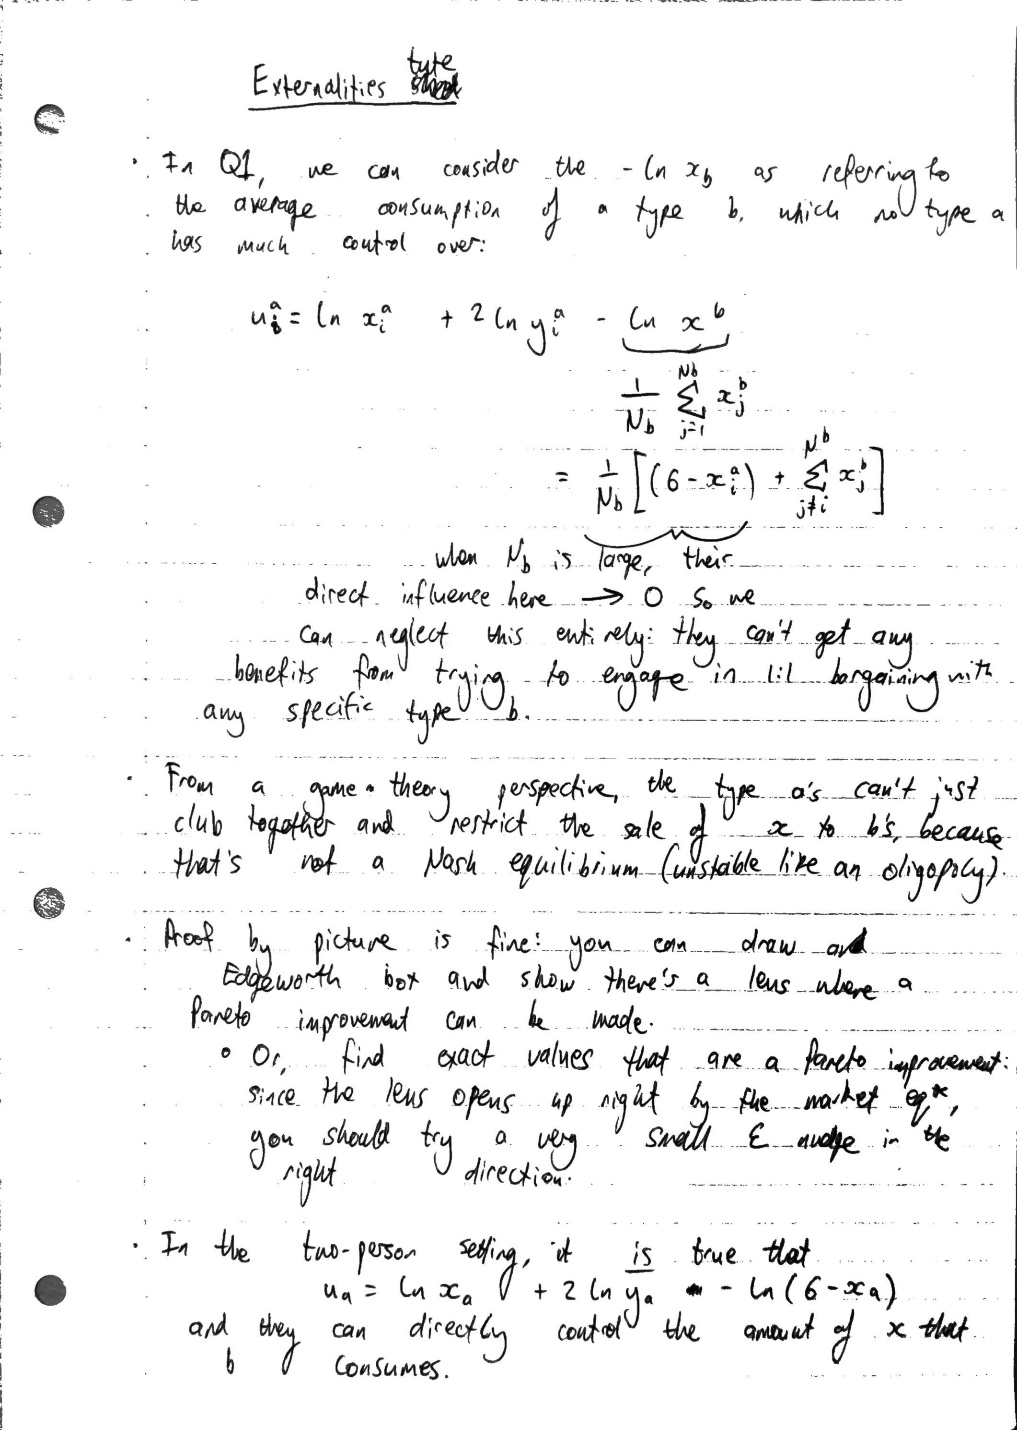 Externalities tute
• In Q1, we can consider the - ln x_b as referring to
the average consumption of a type b, which no type a
has much control over:
u_i^a = ln x_i^a + 2 ln y_i^a - ln x^b
1/N_b Σ_{j=1}^{N_b} x_j^b
= 1/N_b [(6 - x_i^a) + Σ_{j≠i}^{N^b} x_j^b]
when N_b is large, their
direct influence here → 0 so we
can neglect this entirely: they can't get any
benefits from trying to engage in lil bargaining with
any specific type b.
• From a game theory perspective, the type a's can't just
club together and restrict the sale of x to b's, because
that's not a Nash equilibrium (unstable like an oligopoly).
• Proof by picture is fine: you can draw an
Edgeworth box and show there's a lens where a
Pareto improvement can be made.
• Or, find exact values that are a Pareto improvement:
since the lens opens up right by the market eq^x,
you should try a very small ε nudge in the
right direction.
• In the two-person setting, it is true that
u_a = ln x_a + 2 ln y_a - ln(6 - x_a)
and they can directly control the amount of x that
b consumes.